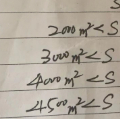 S
2000m²<S
3000m²<S
4000m²<S
4500m²<S